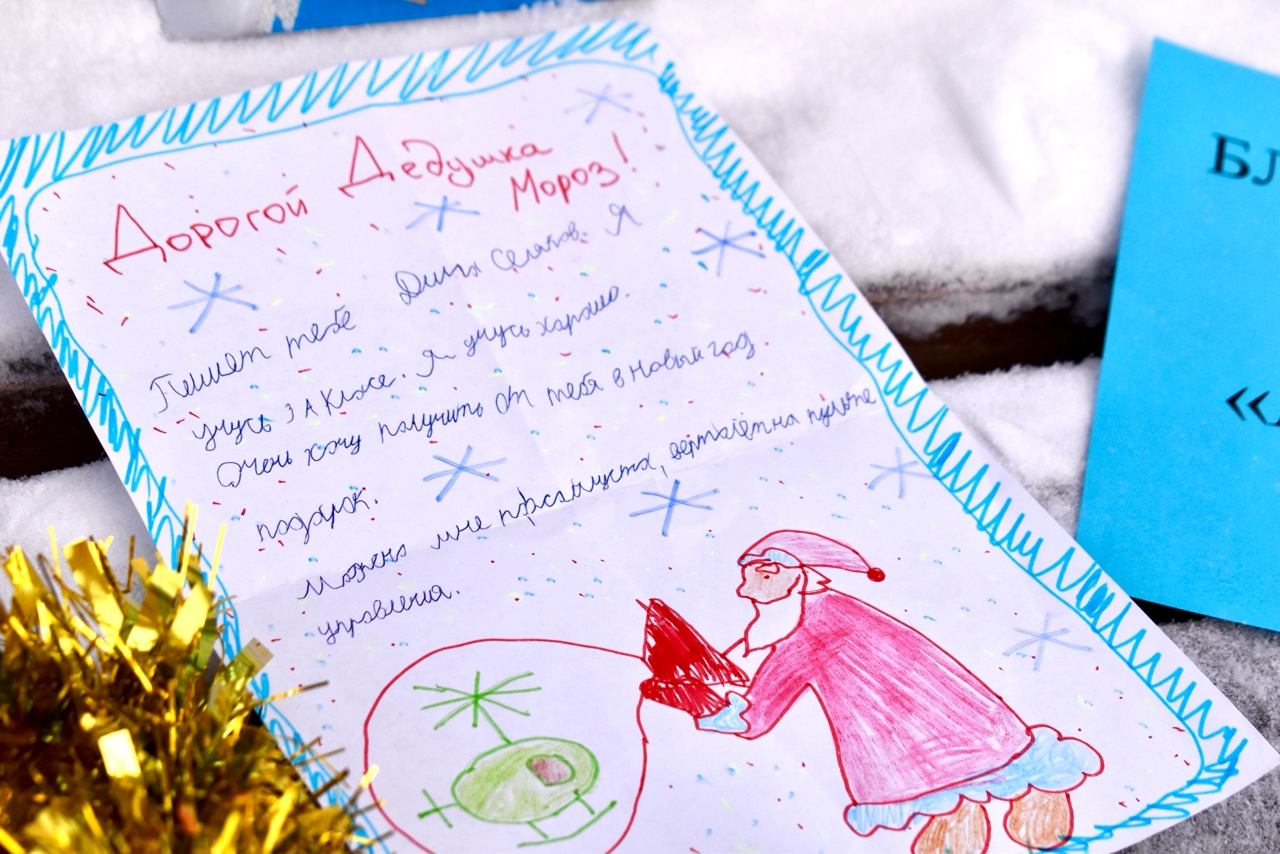 Дорогой Дедушка
Мороз!
Пишет тебе Дима Селяков. Я
учусь 3 А класе. Я учусь харашо.
Очень хочу палучить от тебя в новый год
подарок.
Можена мне пасалуста, верталёт на пульте
управления.
БЛ
«